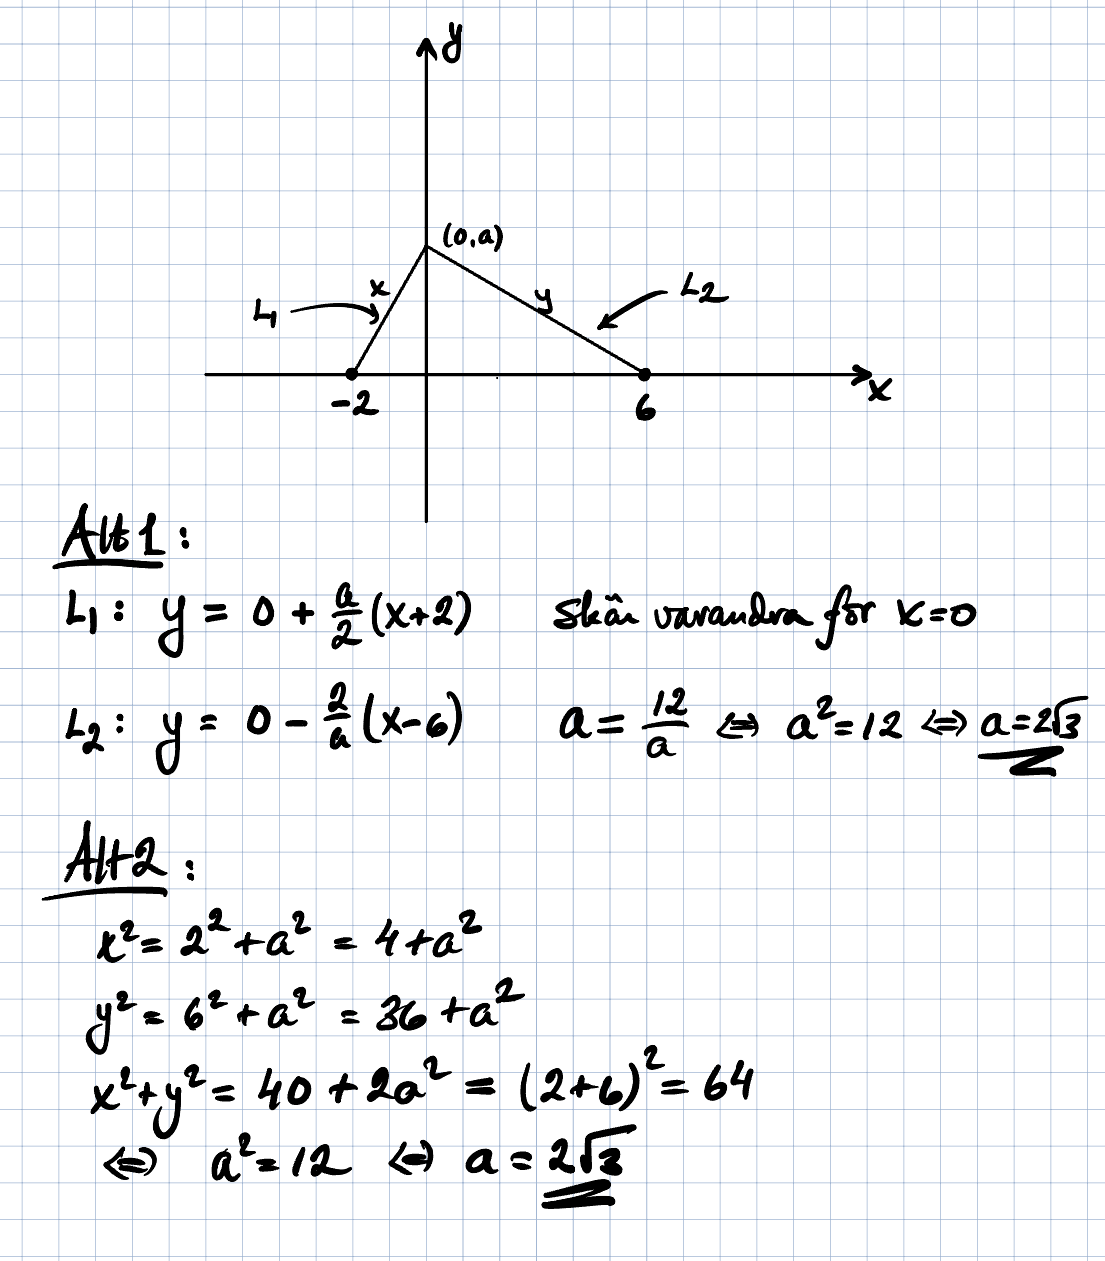 y
(0,a)
x
y
L1
L2
-2
6
x
Alt 1:
L₁: y = 0 + a/2 (x+2) Skär varandra för x=0
L₂: y = 0 - 2/a (x-6) a = 12/a ⇔ a² = 12 ⇔ a = 2√3
Alt 2:
x² = 2² + a² = 4 + a²
y² = 6² + a² = 36 + a²
x² + y² = 40 + 2a² = (2+6)² = 64
⇔ a² = 12 ⇔ a = 2√3